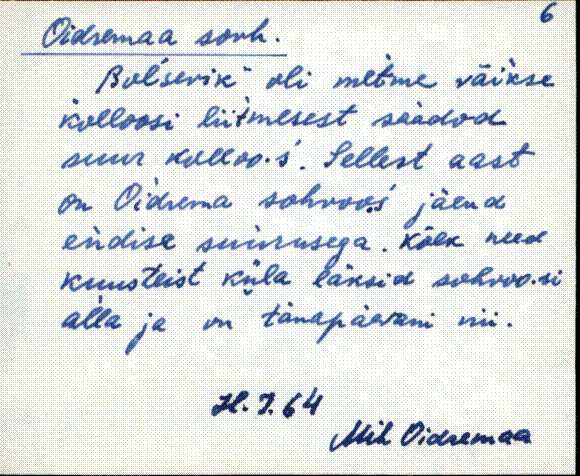 6
Oidremaa sovh.
Bol'ševik" oli mitme väikse
kolloosi liitmesest saadod
suur kolloo·s'. Sellest aast
on Oidrema sohvoos' jäend
endise suurusega. Kõik need
kuusteist küla läksid sohvoo·si
alla ja on tänapäevani nii.
H. J. 64
Mih Oidremaa